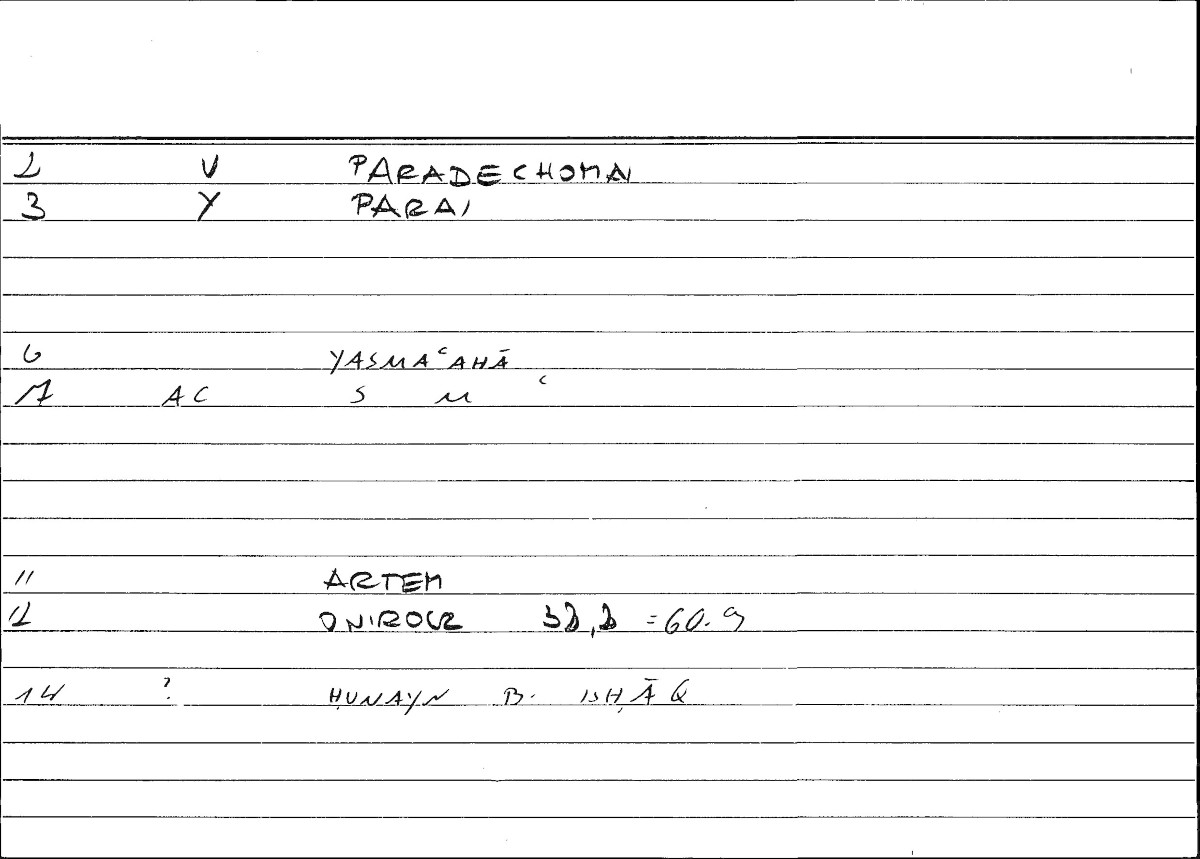 2 V PARADECHOMAI
3 Y PARAI
6 YASMAʿAHĀ
7 AC S M ʿ
11 ARTEM
12 ONIROCR = 60.9
14 ? ḤUNAYN B. ISḤĀQ